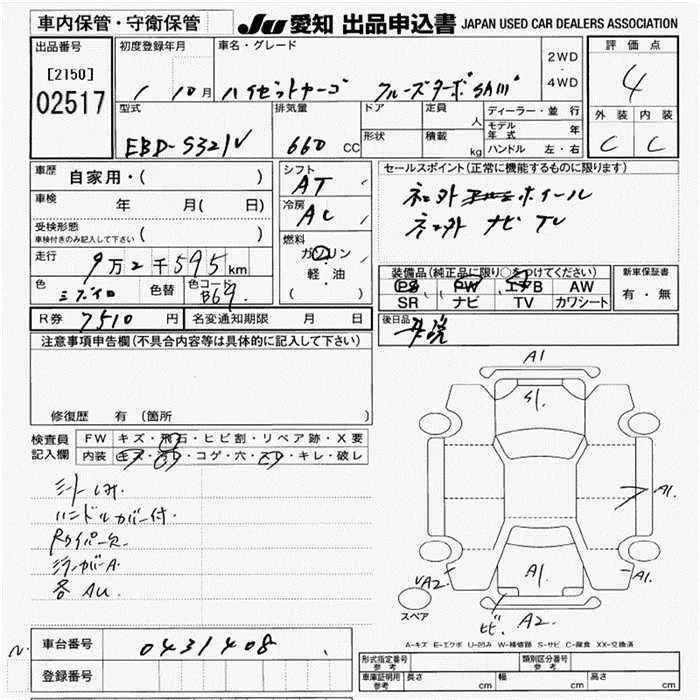 車内保管・守衛保管
JU 愛知 出品申込書 JAPAN USED CAR DEALERS ASSOCIATION
出品番号
[2150]
02517
初度登録年月
1 10月
車名・グレード
ハイゼットカーゴ クルーズターボSAⅢ
2WD
・
4WD
評価点
4
外装 内装
C C
型式
EBD-S321V
排気量
660 CC
ドア
形状
定員
人
積載
kg
ディーラー・並行
モデル
年式 年
ハンドル 左・右
車歴
自家用・( )
車検
年 月( 日)
受検形態
車検付きのみ記入して下さい ( )
走行
9万2千595km
色
色替
色コード
B64
シフト
AT
冷房
AC
燃料
ガソリン
軽・油
( )
セールスポイント(正常に機能するものに限ります)
ネエ外 ホイール
ネエ外 ナビ TV
装備品(純正品に限り○をつけてください)
PS PW エアB AW
SR ナビ TV カワシート
新車保証書
有・無
R券 7510 円
名変通知期限 月 日
後日品
取説
注意事項申告欄(不具合内容等は具体的に記入して下さい)
修復歴 有(箇所 )
検査員
記入欄
FW キズ・飛石・ヒビ割・リペア跡・X要
内装 キズ・コゲ・穴・キレ・破レ
シートしみ.
ハンドルカバー付.
Rワイパー欠.
ミラーカバーA.
各AU.
A1
S1.
A1.
A1.
VA2
A1.
スペア
ヒビ. A2.
A-キズ E-エクボ U-凹み W-補修跡 S-サビ C-腐食 XX-交換済
車台番号
0431408
登録番号
形式指定番号
参考
類別区分番号
参考
車庫証明
参考
長さ cm 幅 cm 高さ cm